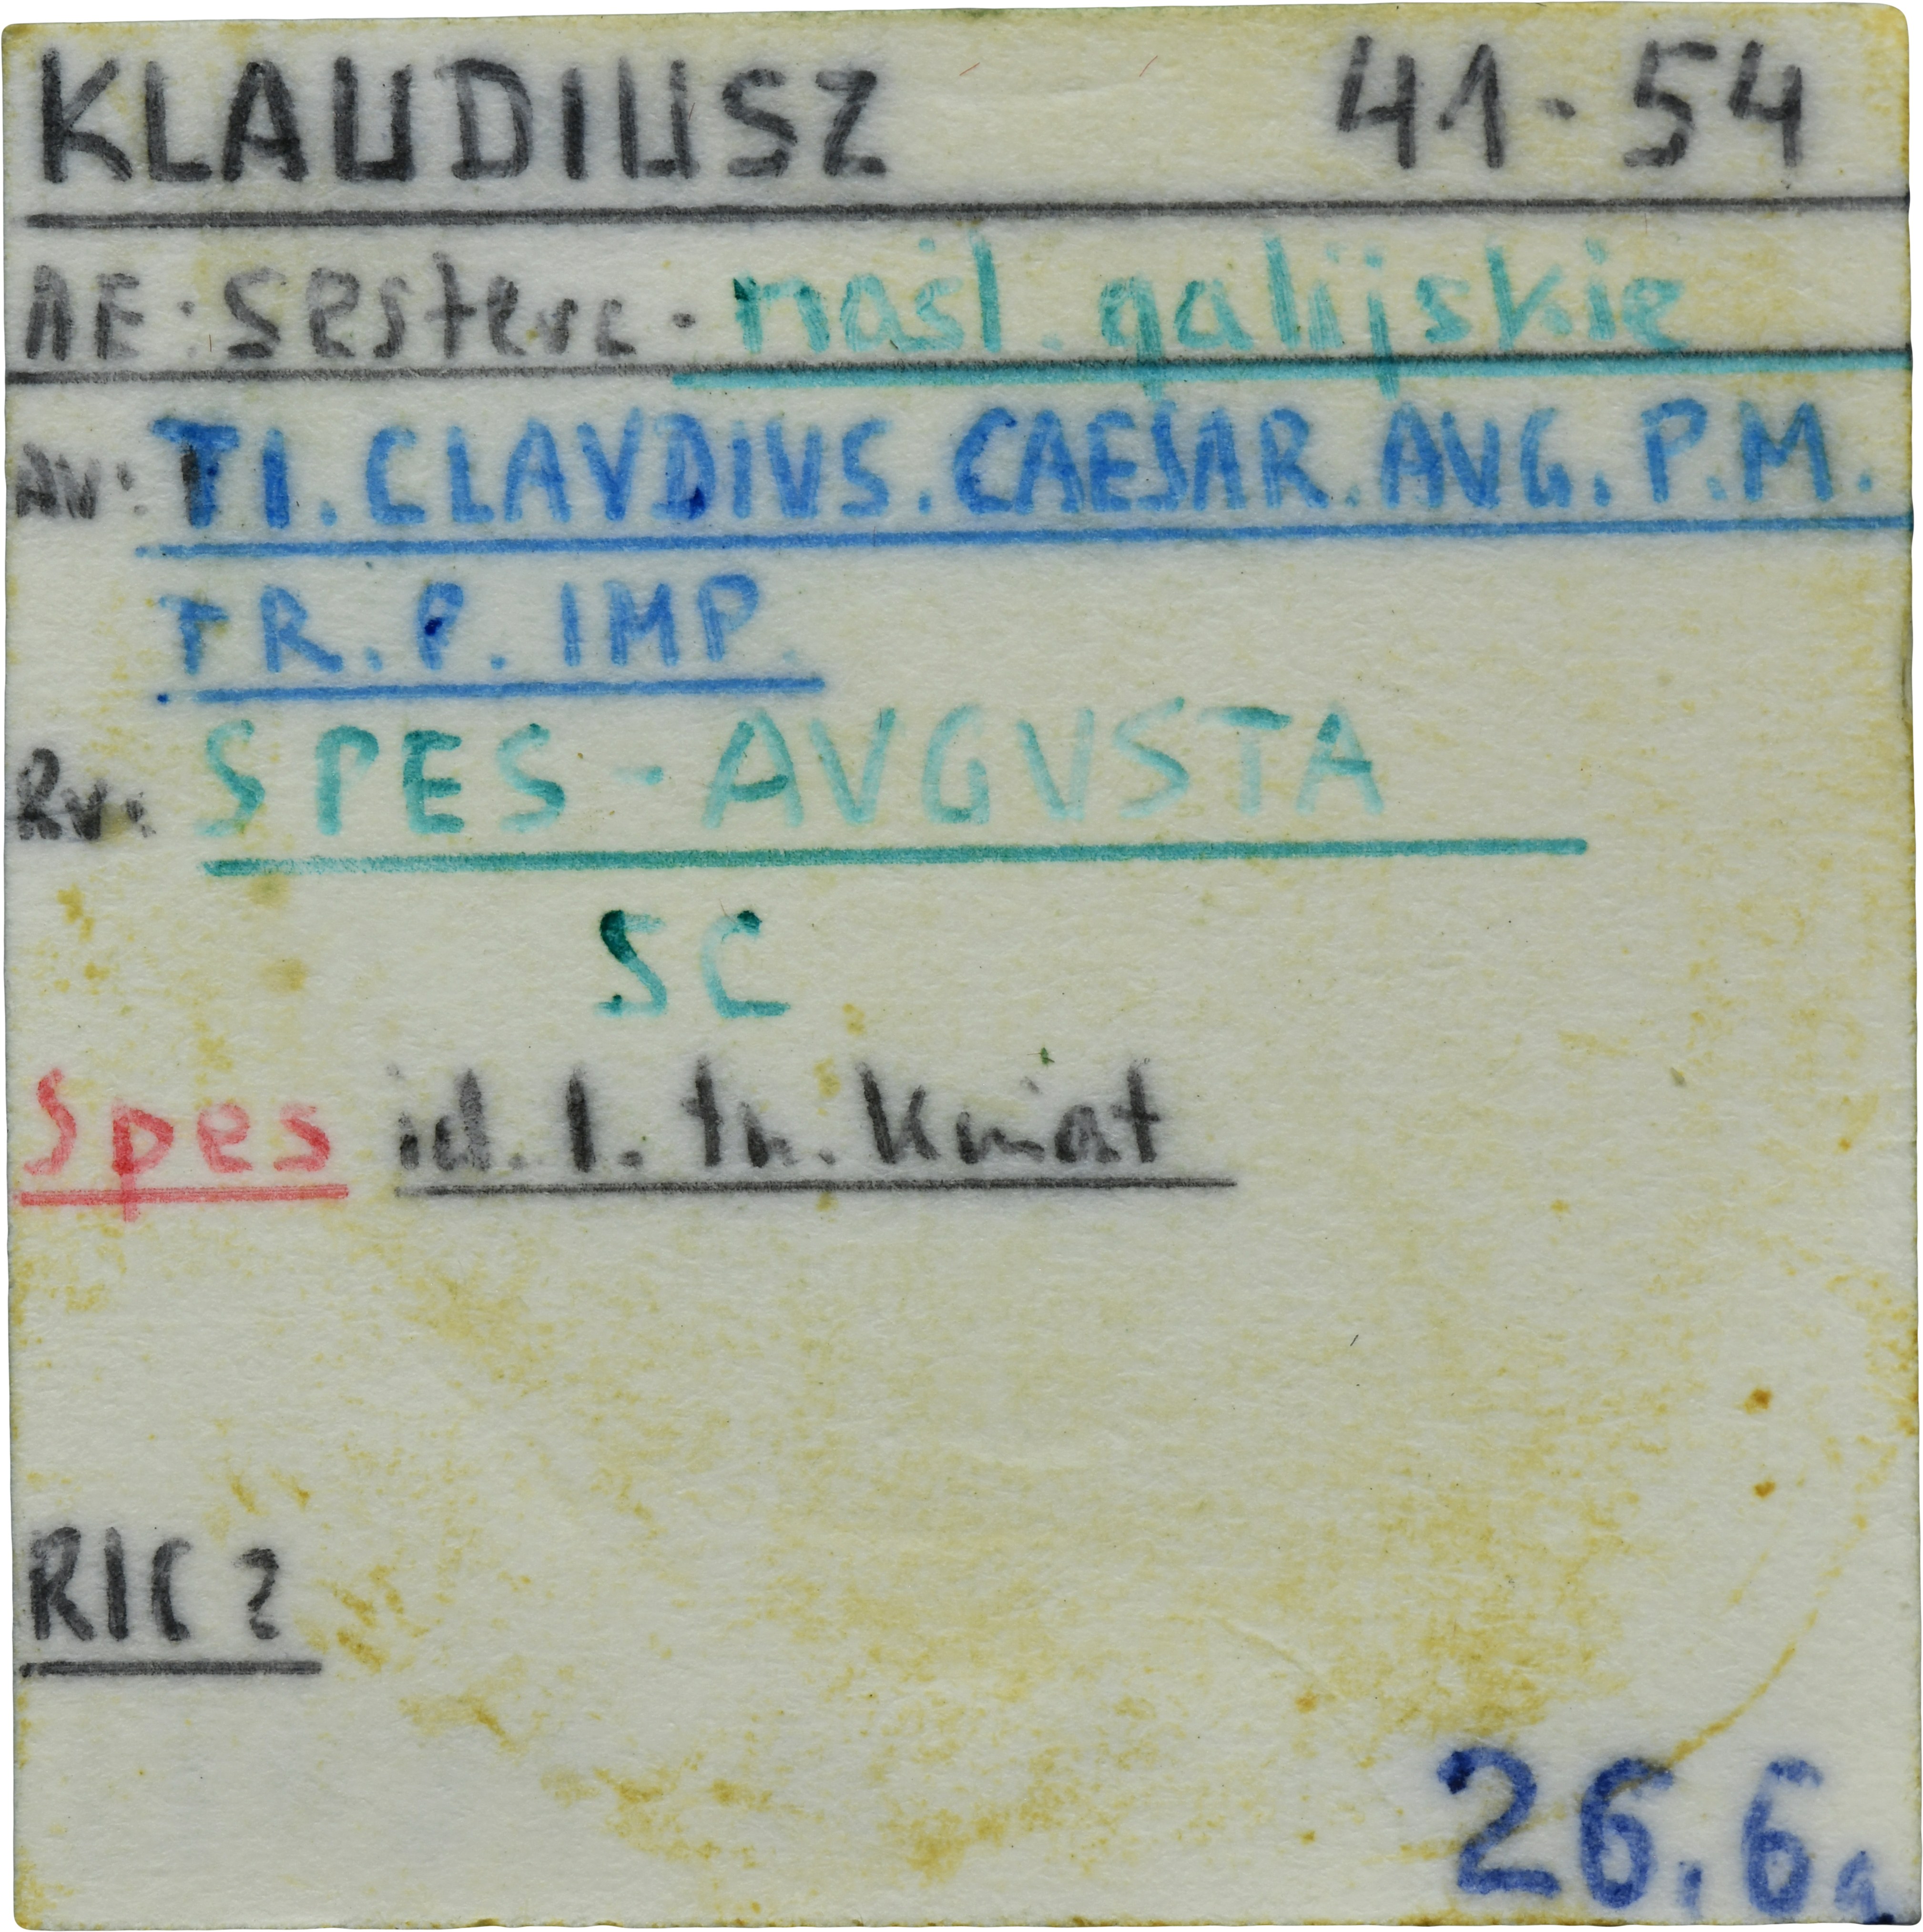 KLAUDIUSZ 41-54
AE: Sesterc - naśl. galijskie
AV: TI. CLAVDIVS. CAESAR. AVG. P.M.
TR. P. IMP.
Rv: SPES - AVGVSTA
SC
Spes id. l. tr. kwiat
RIC 2
26,6g